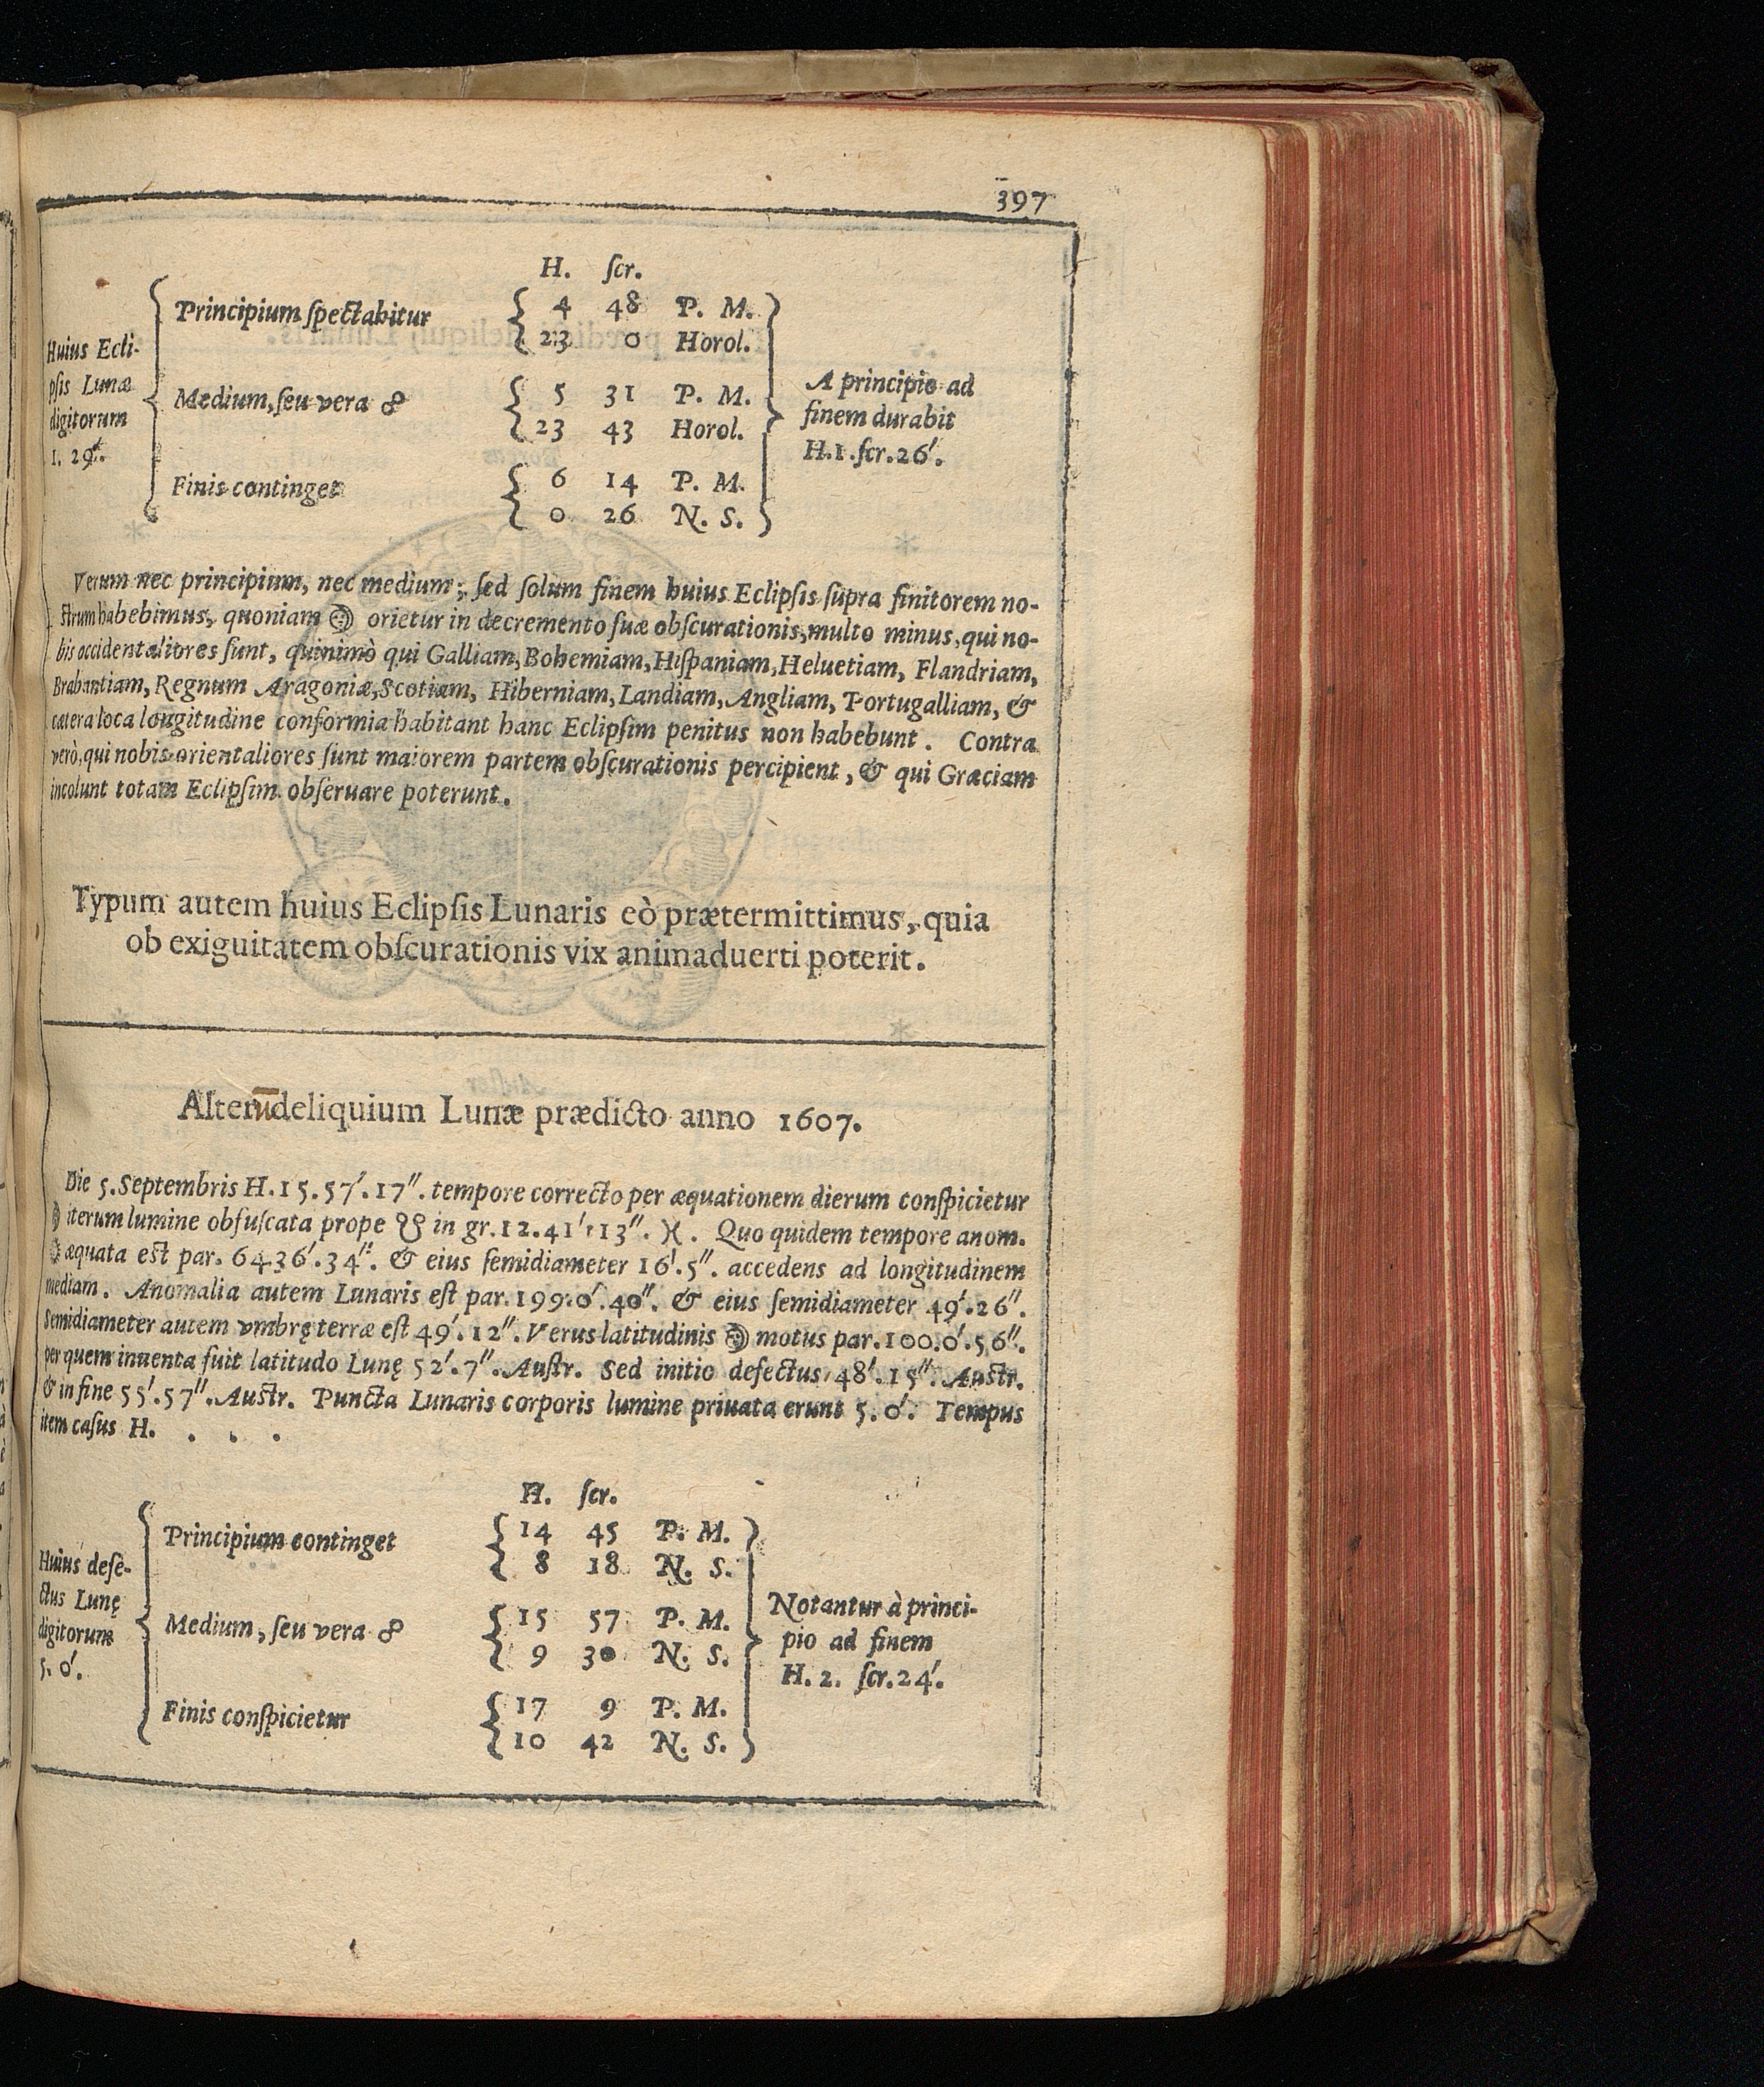 397
H. ſcr.
Huius Ecli-
pſis Lunæ
digitorum
1. 29′.
Principium ſpectabitur { 4 48 P. M.
{ 23 0 Horol.
Medium, ſeu vera ☍ { 5 31 P. M.
{ 23 43 Horol.
Finis continget { 6 14 P. M.
{ 0 26 N. S.
A principio ad
finem durabit
H.1.ſcr.26′.
Verum nec principium, nec medium; ſed ſolum finem huius Eclipſis ſupra finitorem no-
ſtrum habebimus, quoniam ☽ orietur in decremento ſuæ obſcurationis, multo minus, qui no-
bis occidentaliores ſunt, quinimò qui Galliam, Bohemiam, Hiſpaniam, Heluetiam, Flandriam,
Brabantiam, Regnum Aragoniæ, Scotiam, Hiberniam, Landiam, Angliam, Portugalliam, &
cætera loca longitudine conformia habitant hanc Eclipſim penitus non habebunt. Contra
verò, qui nobis orientaliores ſunt maiorem partem obſcurationis percipient, & qui Græciam
incolunt totam Eclipſim obſeruare poterunt.
Typum autem huius Eclipſis Lunaris eò prætermittimus, quia
ob exiguitatem obſcurationis vix animaduerti poterit.
Alterūdeliquium Lunæ prædicto anno 1607.
Die 5. Septembris H.15.57′.17″. tempore correcto per æquationem dierum conſpicietur
☽ iterum lumine obfuſcata prope ☋ in gr.12.41′.13″. ♓. Quo quidem tempore anom.
æquata eſt par. 64.36′.34″. & eius ſemidiameter 16′.5″. accedens ad longitudinem
mediam. Anomalia autem Lunaris eſt par.199.0′.40″. & eius ſemidiameter 49′.26″.
Semidiameter autem vmbrę terræ eſt 49′.12″. Verus latitudinis ☽ motus par.100.0′.56″.
per quem inuenta fuit latitudo Lunę 52′.7″. Auſtr. Sed initio defectus 48′.15″. Auſtr.
& in fine 55′.57″. Auſtr. Puncta Lunaris corporis lumine priuata erunt 5.0′. Tempus
item caſus H. . . .
H. ſcr.
Huius defe-
ctus Lunę
digitorum
5. 0′.
Principium continget { 14 45 P. M.
{ 8 18 N. S.
Medium, ſeu vera ☍ { 15 57 P. M.
{ 9 30 N. S.
Finis conſpicietur { 17 9 P. M.
{ 10 42 N. S.
Notantur à princi-
pio ad finem
H. 2. ſcr.24′.